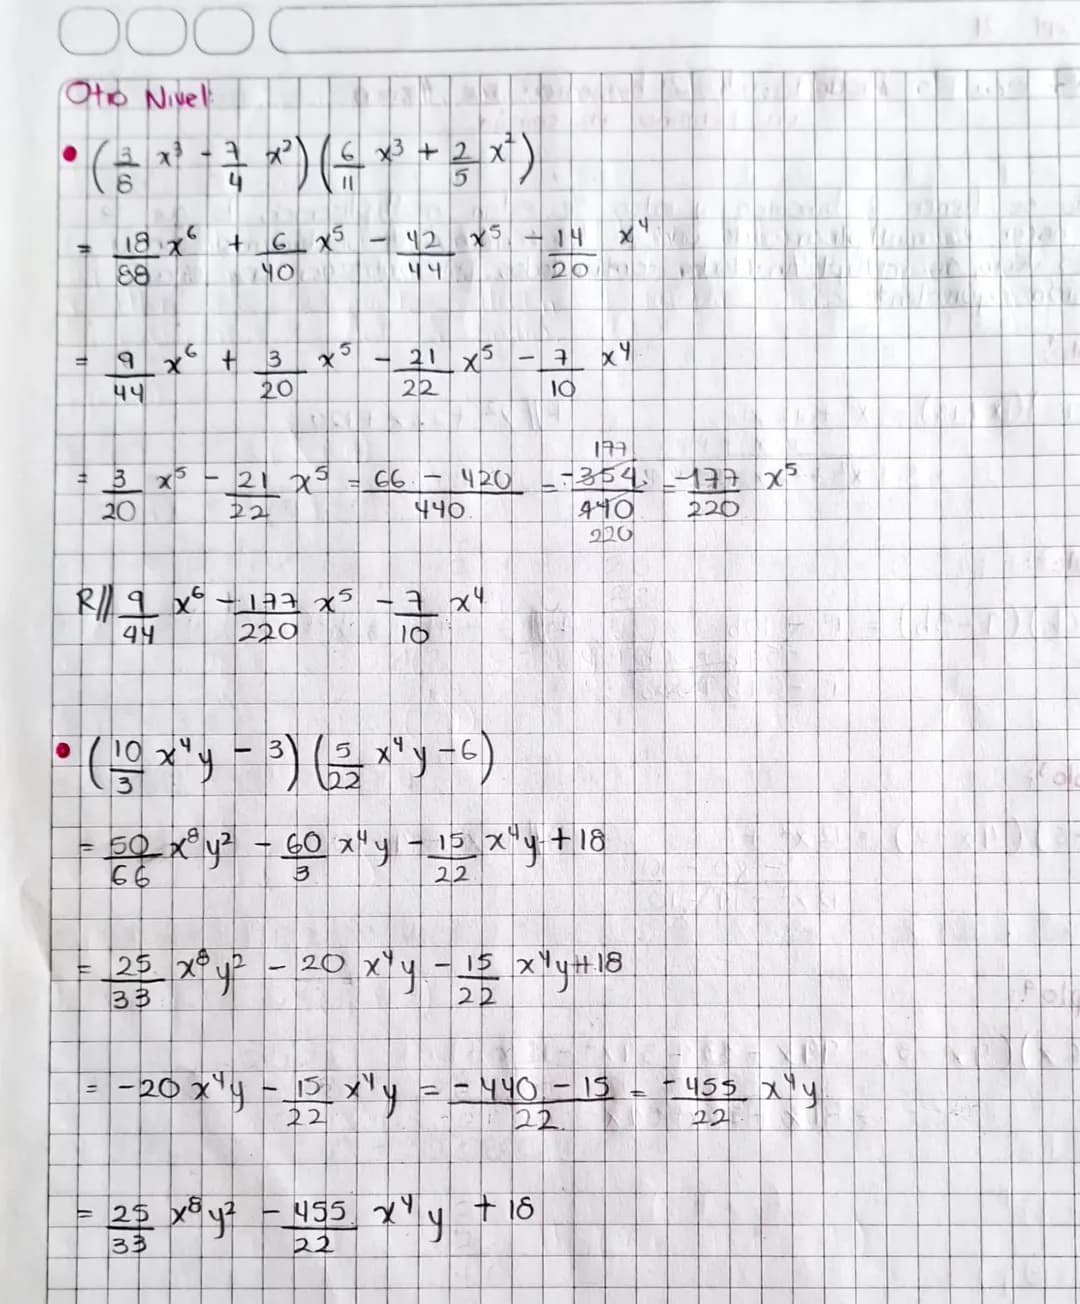 Otro Nivel:
• (3/8 x³ - 7/4 x²) (6/11 x³ + 2/5 x²)
= 18/88 x⁶ + 6/40 x⁵ - 42/44 x⁵ - 14/20 x⁴
= 9/44 x⁶ + 3/20 x⁵ - 21/22 x⁵ - 7/10 x⁴
= 3/20 x⁵ - 21/22 x⁵ = 66 - 420/440 = -354/440 177/220 = -177/220 x⁵
R// 9/44 x⁶ - 177/220 x⁵ - 7/10 x⁴
• (10/3 x⁴y - 3) (5/22 x⁴y - 6)
= 50/66 x⁸y² - 60/3 x⁴y - 15/22 x⁴y + 18
= 25/33 x⁸y² - 20 x⁴y - 15/22 x⁴y + 18
= -20 x⁴y - 15/22 x⁴y = -440 - 15/22 = -455/22 x⁴y
= 25/33 x⁸y² - 455/22 x⁴y + 18